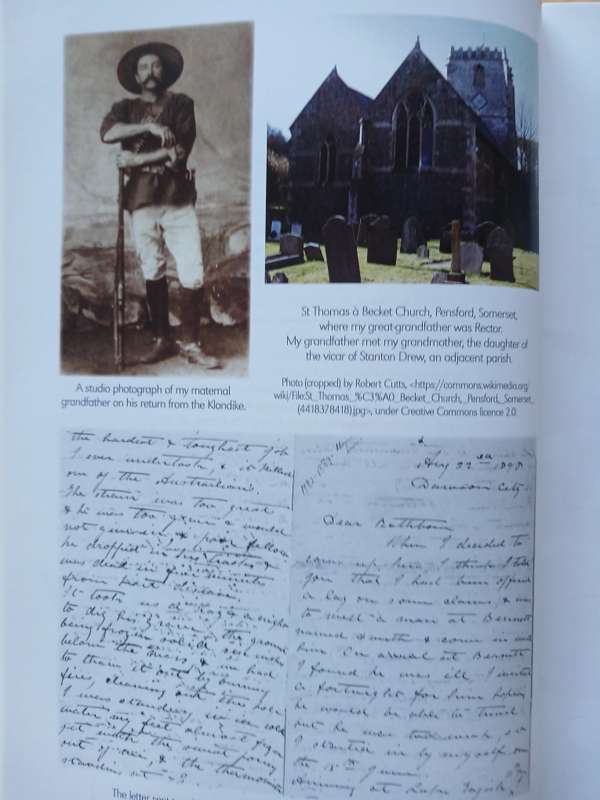 A studio photograph of my maternal
grandfather on his return from the Klondike.
St Thomas à Becket Church, Pensford, Somerset,
where my great-grandfather was Rector.
My grandfather met my grandmother, the daughter of
the vicar of Stanton Drew, an adjacent parish.
Photo (cropped) by Robert Cutts, <https://commons.wikimedia.org/
wiki/File:St_Thomas_%C3%A0_Becket_Church,_Pensford,_Somerset_
(4418378418).jpg>, under Creative Commons licence 2.0.
the hardest & toughest job
I ever undertook, & it killed
one of the Australians.
The strain was too great
& he was too game & would
not give in, & poor fellow
he dropped in his tracks &
was dead in five minutes
from heart disease.
It took us a day & a night
to dig his grave, the ground
being frozen solid
below the moss & we had
to thaw it out by burning
fires, cleaning out the hole
I was standing in ice cold
water my feet almost frozen
yet with the sweat pouring
out of me, & the thermometer
standing at
Aug 22nd 1898
Dawson City
Dear Rathborn
When I decided to
come up here I think I told
you that I had been offered
a lay on some claims, & was
to meet a man at Bennett
named & come in with
him. On arrival at Bennett
I found he was ill. I waited
a fortnight for him hoping
he would be able to travel
but he was too weak, so
I started in by myself on
the
Arriving at Lake Tagish
The letter